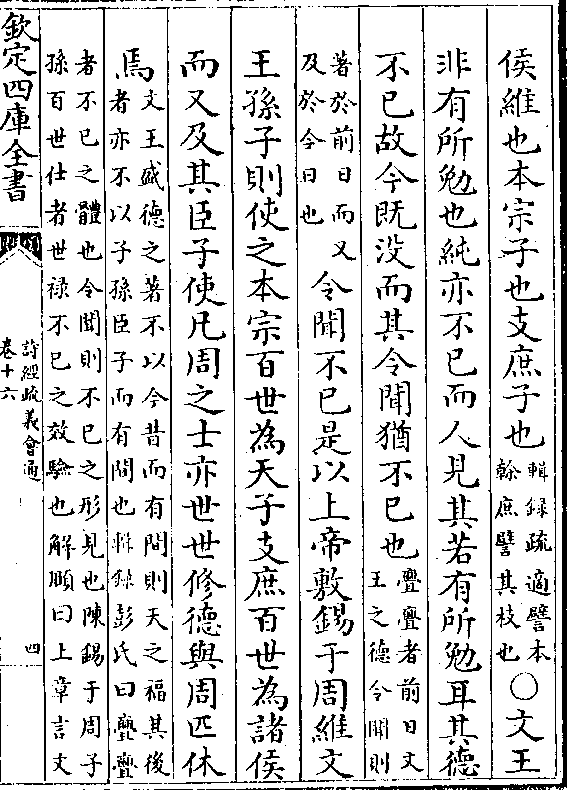 侯維也本宗子也支庶子也輯録疏適譬本
榦庶譬其枝也○文王
非有所勉也純亦不已而人見其若有所勉耳其德
不已故今既没而其令聞猶不已也亹亹者前日文
王之德令聞則
著於前日而又
及於今日也令聞不已是以上帝敷錫于周維文
王孫子則使之本宗百世為天子支庶百世為諸侯
而又及其臣子使凡周之士亦世世修德與周匹休
焉文王盛德之著不以今昔而有間則天之福其後
者亦不以子孫臣子而有間也輯録彭氏曰亹亹
者不已之體也令聞則不已之形見也陳錫于周子
孫百世仕者世禄不已之效驗也解頤曰上章言文
欽定四庫全書
詩經疏義會通
卷十六
四